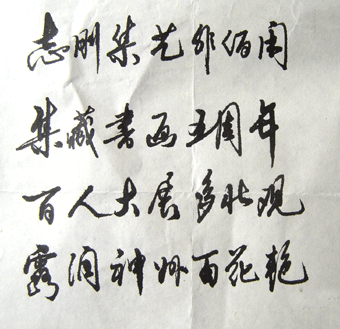 志刚集艺外佰周
集藏书画五周年
百人大展多壮观
露润神州百花艳